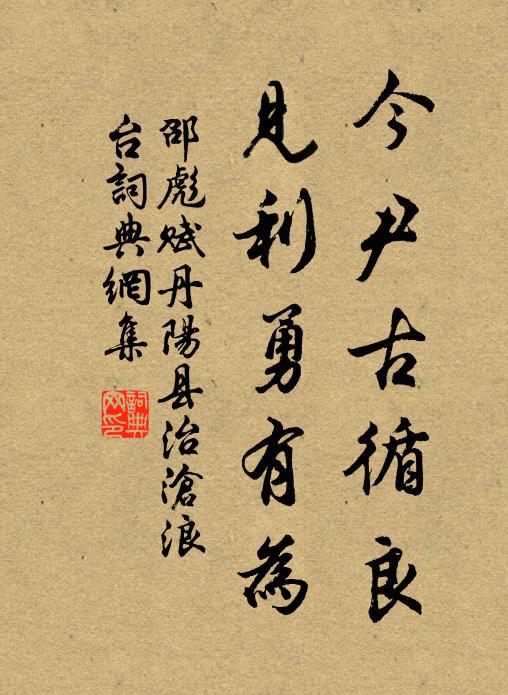 今尹古循良
見利勇有為
邵彪赋丹陽县治滄浪
台詞典網集
詞典网印